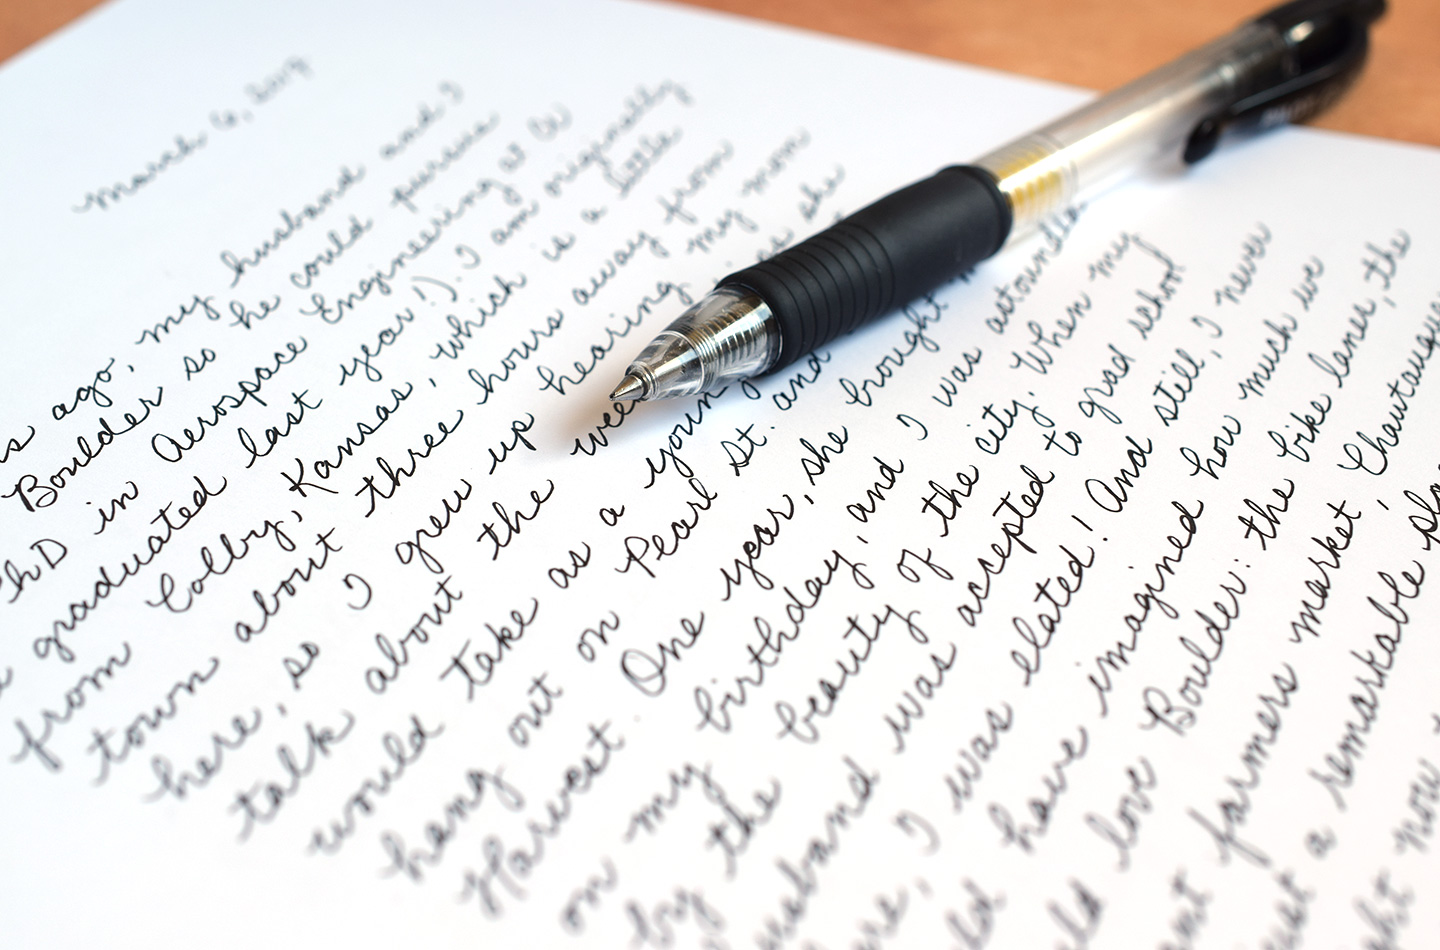 March 6,
ago, my husband and I
Boulder so he could pursue
PhD in Aerospace Engineering at CU
graduated last year!). I am originally
from Colby, Kansas, which is a little
town about three hours away from
here, so I grew up hearing my mom
talk about the she
would take as a young and
hang out on Pearl St. and
Harvest. One year, she brought
on my birthday, and I was astounded
by the beauty of the city. When my
husband was accepted to grad school
I was elated! And still, I never
have imagined how much we
love Boulder: the bike lanes, the
farmers market, Chautauqua
a remarkable
now